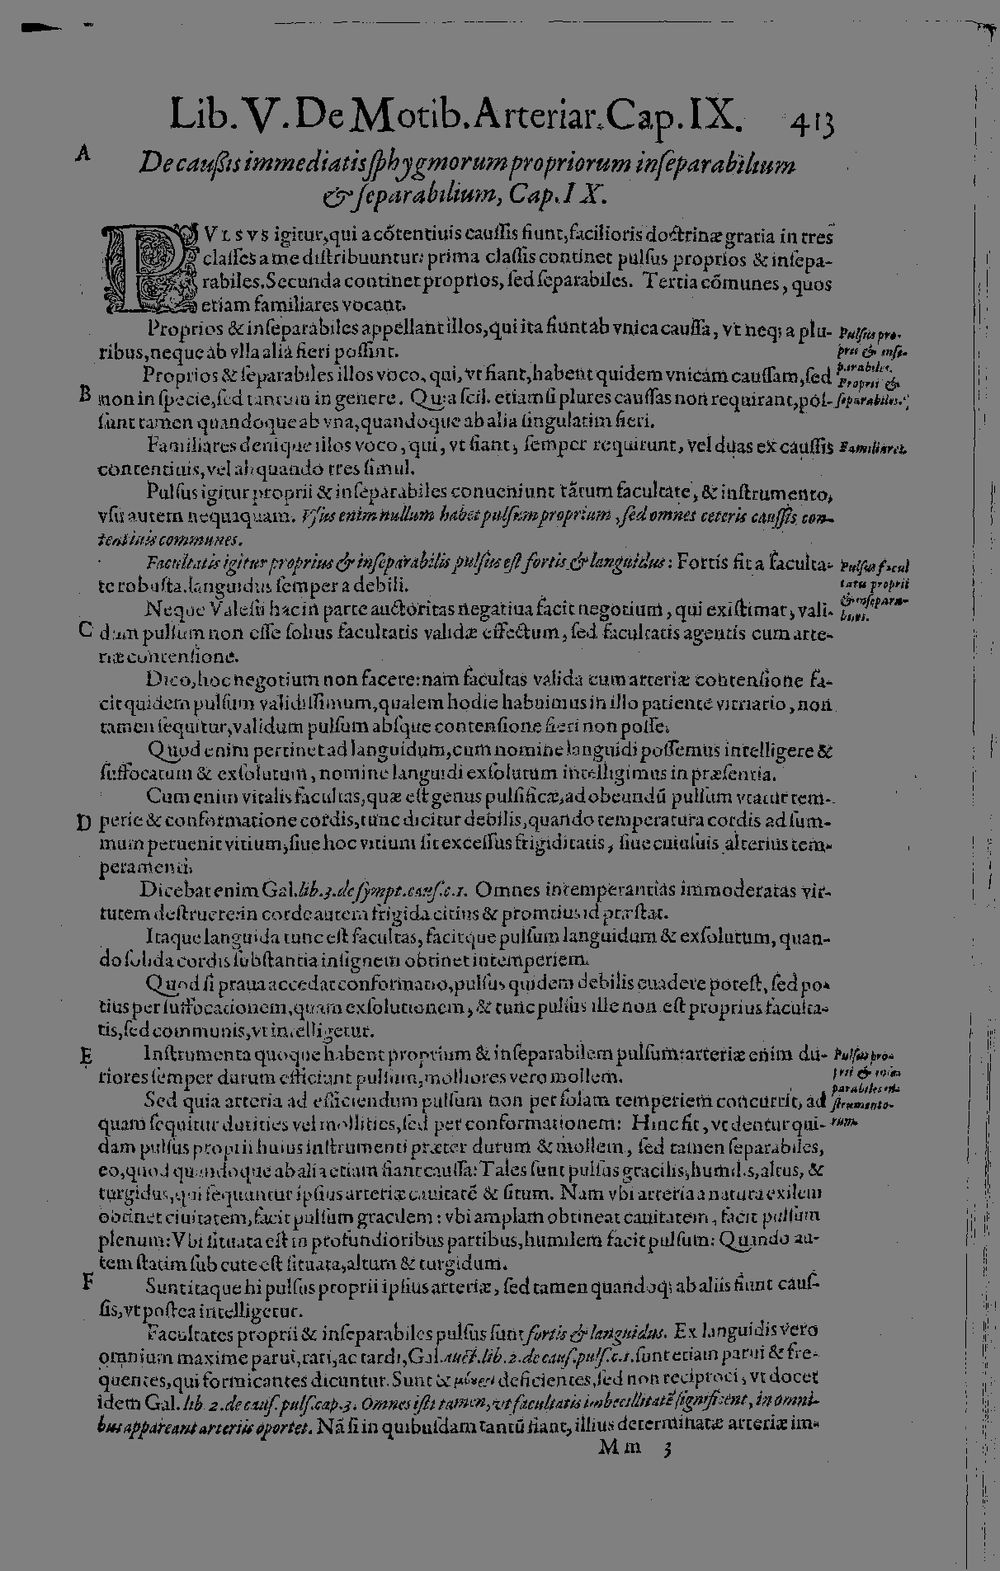 Lib. V. De Motib. Arteriar. Cap. IX. 413
A
De caußis immediatis sphygmorum propriorum inseparabilium
& separabilium, Cap. IX.
PVLSVS igitur, qui a cōtentiuis caussis fiunt, facilioris doctrinæ gratia in tres
classes a me distribuuntur: prima classis continet pulsus proprios & insepa-
rabiles. Secunda continet proprios, sed separabiles. Tertia cōmunes, quos
etiam familiares vocant.
Proprios & inseparabiles appellant illos, qui ita fiunt ab vnica caussa, vt neq; a plu-
ribus, neque ab vlla alia fieri possint.
Pulsus pro-
prii & inse-
parabiles.
Proprii &
separabiles.
Proprios & separabiles illos voco, qui, vt fiant, habent quidem vnicam caussam, sed
B
non in specie, sed tantum in genere. Quia scil. etiamsi plures caussas non requirant, pos-
sunt tamen quandoque ab vna, quandoque ab alia singulatim fieri.
Familiares denique illos voco, qui, vt fiant, semper requirunt, vel duas ex caussis
Familiares.
contentiuis, vel aliquando tres simul.
Pulsus igitur proprii & inseparabiles conueniunt tātum facultate, & instrumento,
vsu autem nequaquam. Vsus enim nullum habet pulsum proprium, sed omnes ceteris caussis con-
tentiuis communes.
Facultatis igitur proprius & inseparabilis pulsus est fortis & languidus: Fortis fit a faculta-
te robusta. languidus semper a debili.
Pulsus facul
tatis proprii
& insepara-
biles.
Neque Valesii hac in parte auctoritas negatiua facit negotium, qui existimat, vali-
C
dum pulsum non esse solius facultatis validæ effectum, sed facultatis agentis cum arte-
riæ contensione.
Dico, hoc negotium non facere: nam facultas valida cum arteriæ contensione fa-
cit quidem pulsum validissimum, qualem hodie habuimus in illo patiente vitriario, non
tamen sequitur, validum pulsum absque contensione fieri non posse.
Quod enim pertinet ad languidum, cum nomine languidi possemus intelligere &
suffocatum & exsolutum, nomine languidi exsolutum intelligimus in præsentia.
Cum enim vitalis facultas, quæ est genus pulsificæ, ad obeundū pulsum vtatur tem-
D
perie & conformatione cordis, tunc dicitur debilis, quando temperatura cordis ad sum-
mum peruenit vitium, siue hoc vitium sit excessus frigiditatis, siue cuiusuis alterius tem-
peramenti.
Dicebat enim Gal. lib. 3. de sympt. caus. c. 1. Omnes intemperantias immoderatas vir-
tutem destruere: in corde autem frigida citius & promtius id præstat.
Itaque languida tunc est facultas, facitque pulsum languidum & exsolutum, quan-
do solida cordis substantia insignem obtinet intemperiem.
Quod si praua accedat conformatio, pulsus quidem debilis euadere potest, sed po-
tius per suffocationem, quam exsolutionem, & tunc pulsus ille non est proprius faculta-
tis, sed communis, vt intelligetur.
E
Instrumenta quoque habent proprium & inseparabilem pulsum: arteriæ enim du-
riores semper durum efficiunt pulsum, molliores vero mollem.
Pulsus pro-
prii & inse-
parabiles in-
strumento-
rum.
Sed quia arteria ad efficiendum pulsum non per solam temperiem concurrit, ad
quam sequitur durities vel mollities, sed per conformationem: Hinc fit, vt dentur qui-
dam pulsus proprii huius instrumenti præter durum & mollem, sed tamen separabiles,
eo, quod quandoque ab alia etiam fiant caussa: Tales sunt pulsus gracilis, humilis, altus, &
turgidus, qui sequuntur ipsius arteriæ cauitatē & situm. Nam vbi arteria a natura exilem
obtinet cauitatem, facit pulsum gracilem: vbi amplam obtineat cauitatem, facit pulsum
plenum: Vbi situata est in profundioribus partibus, humilem facit pulsum: Quando au-
tem statim sub cute est situata, altum & turgidum.
F
Sunt itaque hi pulsus proprii ipsius arteriæ, sed tamen quandoq; ab aliis fiunt caus-
sis, vt postea intelligetur.
Facultates proprii & inseparabiles pulsus sunt fortis & languidus. Ex languidis vero
omnium maxime parui, rari, ac tardi, Gal. auct. lib. 2. de caus. puls. c. 1. sunt etiam parui & fre-
quentes, qui formicantes dicuntur. Sunt & deficientes, sed non reciproci, vt docet
idem Gal. lib. 2. de caus. puls. cap. 3. Omnes isti tamen, vt facultatis imbecillitatē significent, in omni-
bus appareant arteriis oportet. Nā si in quibusdam tantū fiant, illius determinatæ arteriæ im-
Mm 3